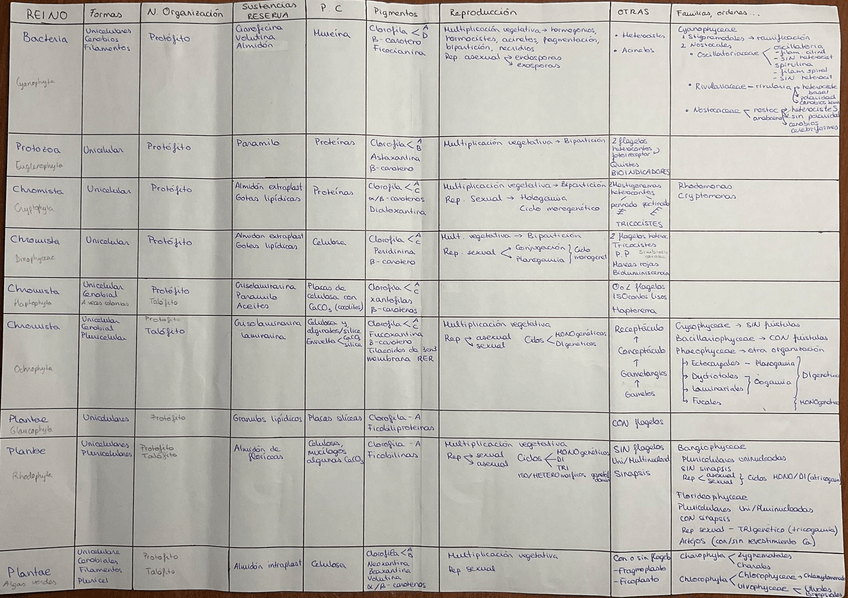 REINO
Formas
N. Organización
Sustancias RESERVA
P. C
Pigmentos
Reproducción
OTRAS
Familias, ordenes...
Bacteria
Cyanophyta
Unicelulares
Cenobios
Filamentos
Protófito
Cianoficina
Volutina
Almidón
Mureína
Clorofila < A
D
B- caroteno
Ficocianina
Multiplicación vegetativa → hormogonios,
hormocistes, acinetos, fragmentación,
bipartición, necridios
Rep asexual → endosporas
exosporas
• Heterocistes
• Acinetos
Cyanophyceae
1 Stigonematales → ramificación
2 Nostocales
• Oscillatoriaceae
oscillatoria
- filam cilind
- SIN heterocist
spirulina
- filam spiral
- SIN heterocist
• Rivulariaceae - rivularia
heterociste
basal
polaridad
• Nostocaceae
nostoc
anabaena
heterocistes
sin polaridad
cenobios
cerebriformes
Protozoa
Euglenophyta
Unicelular
Protófito
Paramilo
Proteínas
Clorofila < A
B
Astaxantina
B-caroteno
Multiplicación vegetativa → Bipartición
2 flagelos
heterocontos,
fotorreceptor
Quistes
BIOINDICADORES
Chromista
Cryptophyta
Unicelular
Protófito
Almidón extraplast
Gotas lipídicas
Proteínas
Clorofila < A
C
α/B-carotenos
Diatoxantina
Multiplicación vegetativa → Bipartición
Rep. Sexual → Hologamia
Ciclo monogenético
2 Mastigonemas
heterocontos
TRICOCISTES
Rhodomonas
Cryptomonas
Chromista
Dinophyceae
Unicelular
Protófito
Almidón extraplast
Gotas lipídicas
Celulosa
Clorofila < A
C
Peridinina
B-caroteno
Mult. vegetativa → Bipartición
Rep. sexual
Conjugación
Planogamia
Ciclo
monogenét
2 flagelos
Tricocistes
P.P
Mareas rojas
Bioluminiscencia
Chromista
Haptophyta
Unicelular
Cenobial
Protófito
Talófito
Crisolaminarina
Paramilo
Aceites
Placas de
celulosa con
CaCO3 (cocolitos)
Clorofila < A
C
xantofilas
B-carotenos
0 o 2 flagelos
ISOcontos lisos
Haptonema
Chromista
Ochrophyta
Unicelular
Cenobial
Pluricelular
Protófito
Talófito
Crisolaminarina
laminarina
Celulosa y
alginatos/sílice
Envuelta < CaCO3
sílice
Clorofila < A
C
Fucoxantina
B-caroteno
Tilacoides de 3 en 3
membrana RER
Multiplicación vegetativa
Rep → asexual
sexual
Ciclos
MONOgenéticos
DIgenéticos
Receptáculo
↑
Conceptáculo
↑
Gametangios
↑
Gametos
Crysophyceae → SIN frústulas
Bacillariophyceae → CON frústulas
Phaeophyceae → otra organización
→ Ectocarpales - Planogamia
→ Dyctiotales
→ Laminariales
Oogamia
→ Fucales
DIgenético
MONOgenético
Plantae
Glaucophyta
Unicelulares
Protófito
Gránulos lipídicos
Placas silíceas
Clorofila - A
Ficobiliproteinas
CON flagelos
Plantae
Rhodophyta
Unicelulares
Pluricelulares
Protófito
Talófito
Almidón de
florídeas
Celulosa,
mucílagos
algunas CaCO3
Clorofila - A
Ficobilinas
Multiplicación vegetativa
Rep → sexual
asexual
Ciclos
MONOgenéticos
DI
TRI
ISO/HETEROmorficos
SIN flagelos
Uni/Multinuclead
Sinapsis
Bangiophyceae
Pluricelulares uninucleadas
SIN sinapsis
Rep < asexual
sexual
Ciclos HONO/DI
Florideophyceae
Pluricelulares Uni/Plurinucleadas
CON sinapsis
Rep sexual - TRIgenético (tricogamia)
Artejos (con/sin revestimiento Ca)
Plantae
Algas verdes
Unicelulares
Cenobiales
Filamentos
Pluricel
Protófito
Talófito
Almidón intraplast
Celulosa
Clorofila < A
B
Neoxantina
Volutina
α/B-carotenos
Multiplicación vegetativa
Rep sexual
Con o sin flagelo
-Fragmoplasto
-Ficoplasto
Charophyta < Zygnematales
Charales
Chlorophyta
Chlorophyceae
Ulvophyceae
Ulvales